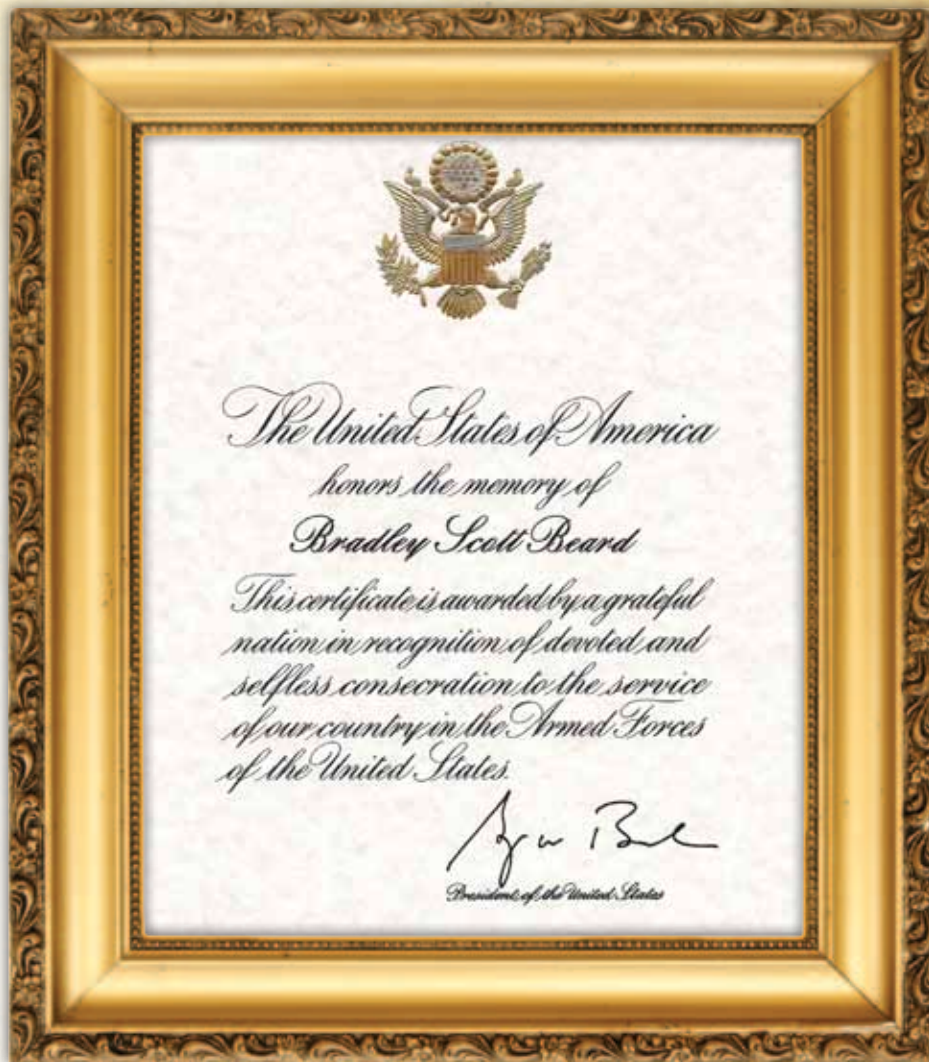 The United States of America
honors the memory of
Bradley Scott Beard
This certificate is awarded by a grateful
nation in recognition of devoted and
selfless consecration to the service
of our country in the Armed Forces
of the United States.
President of the United States